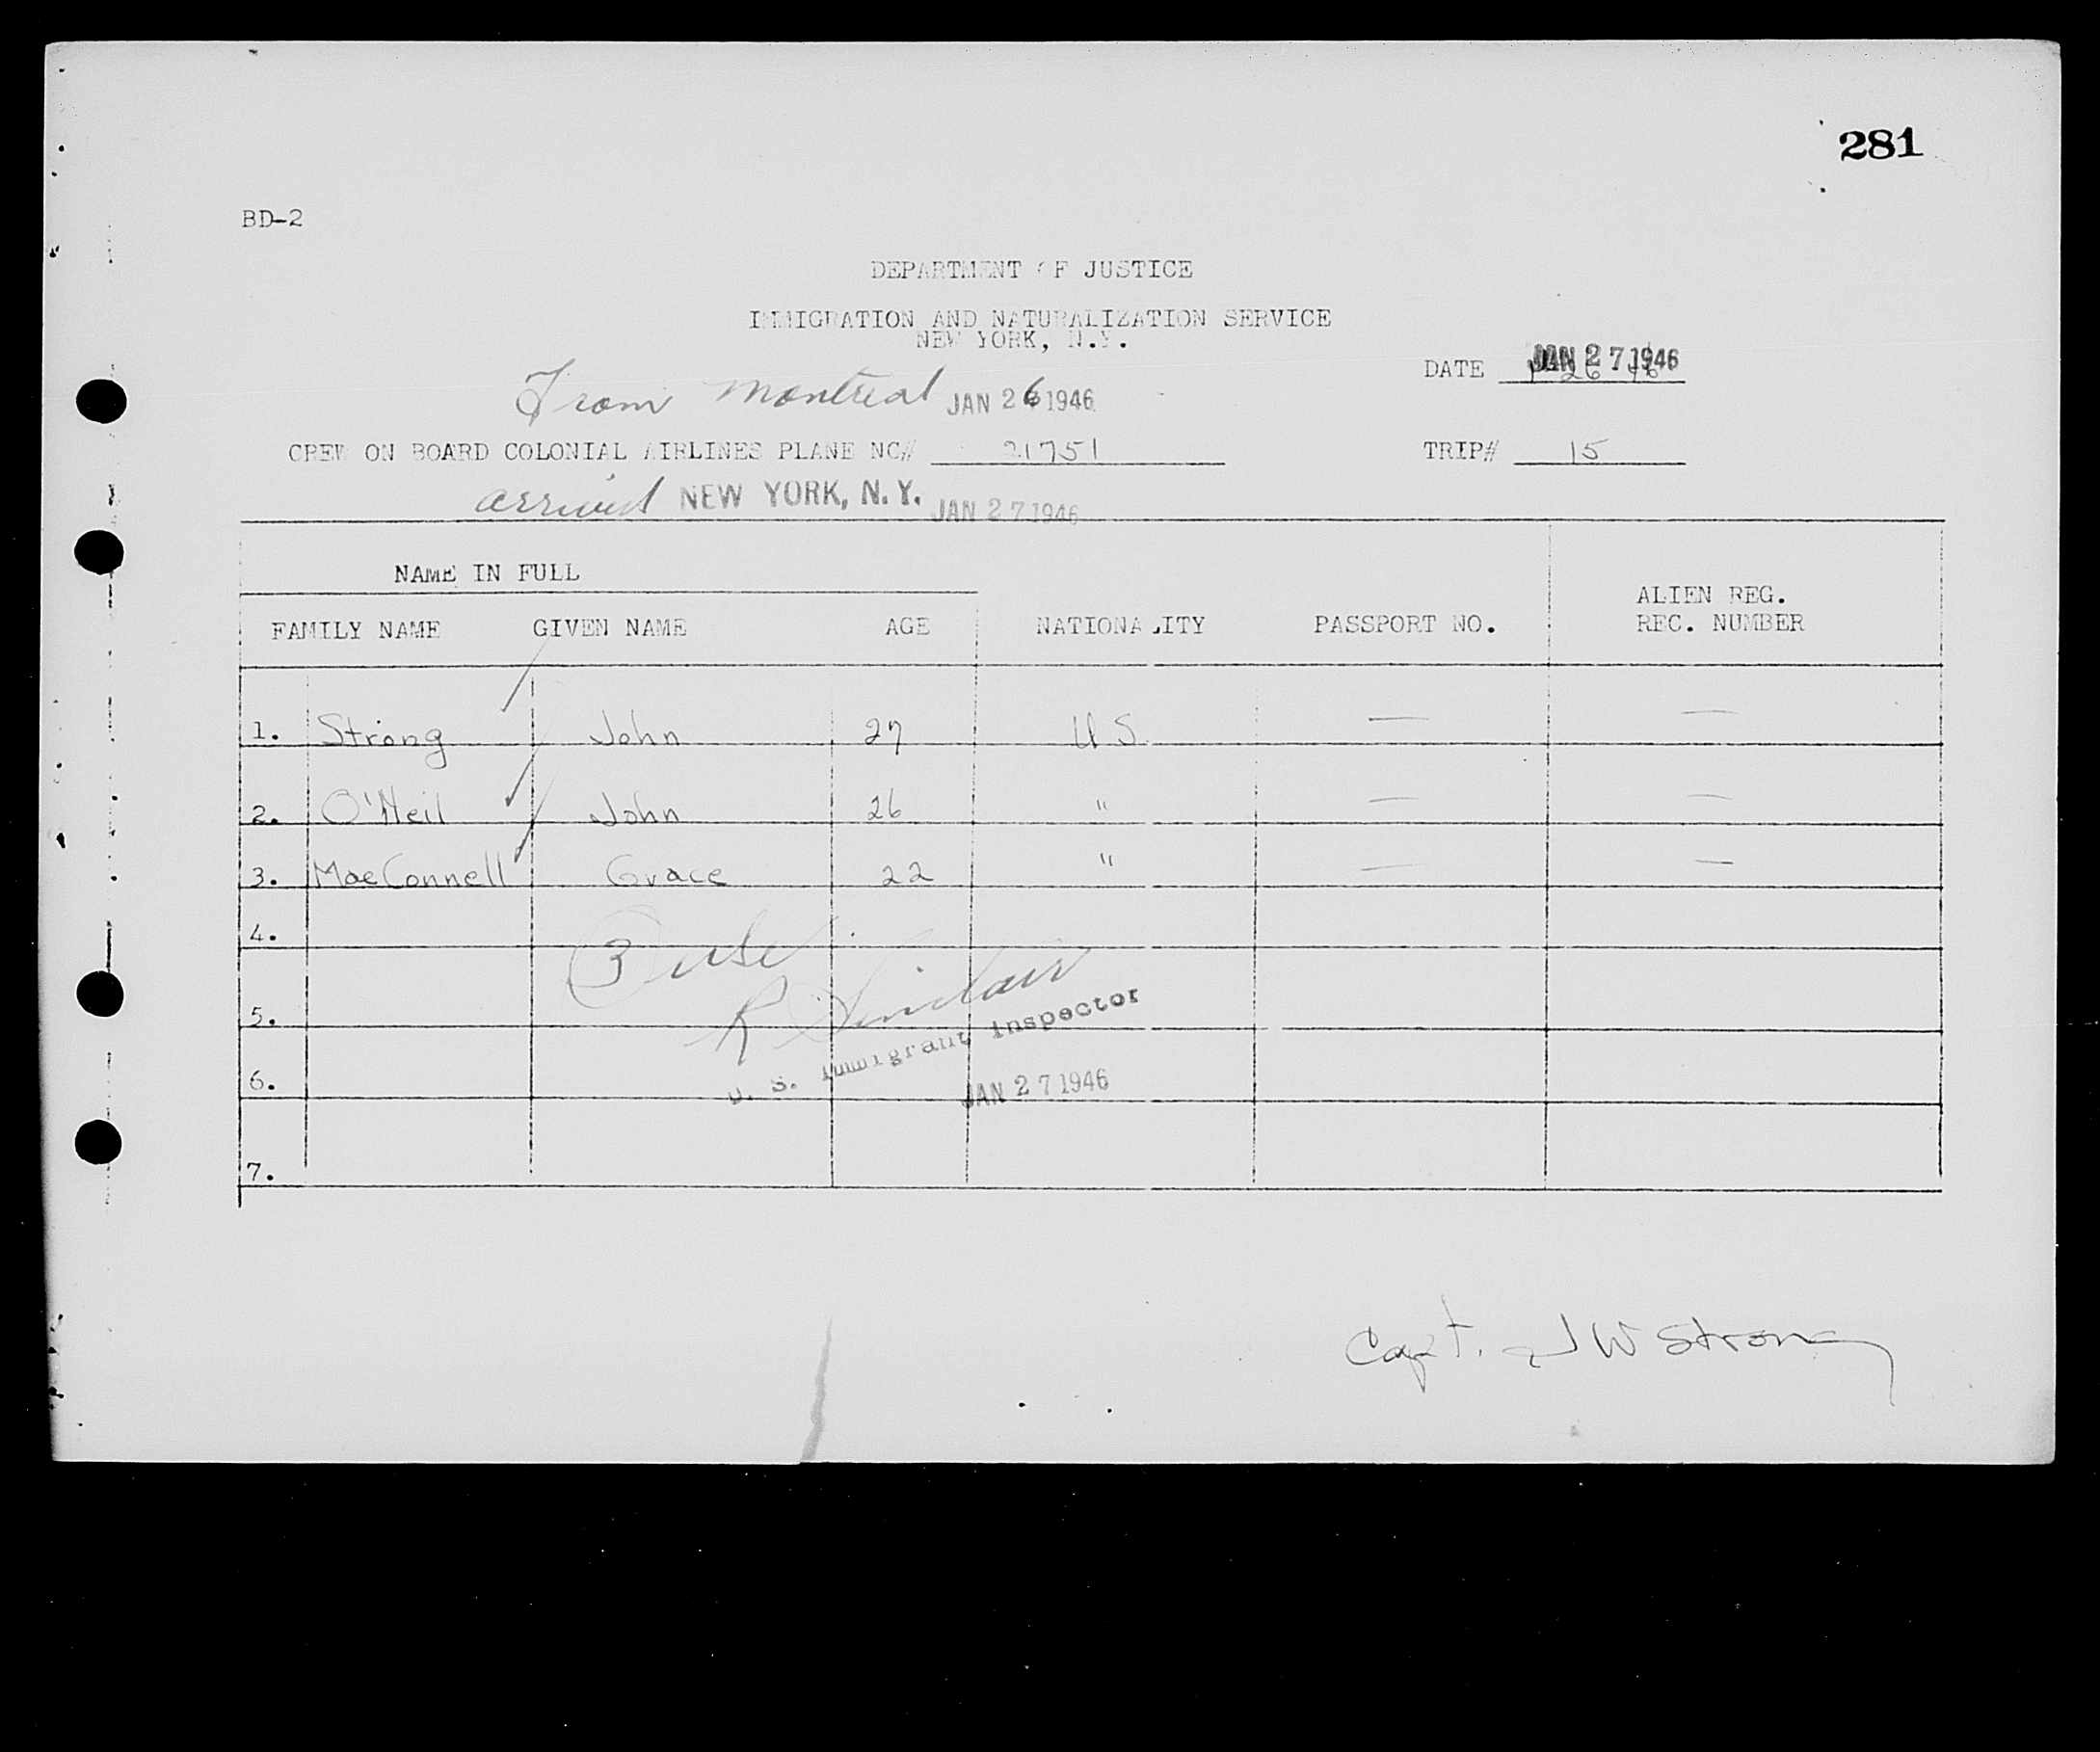 281
BD-2
DEPARTMENT OF JUSTICE
IMMIGRATION AND NATURALIZATION SERVICE
NEW YORK, N.Y.
DATE JAN 27 1946
From Montreal JAN 26 1946
CREW ON BOARD COLONIAL AIRLINES PLANE NC# 21751 TRIP# 15
arrived NEW YORK, N.Y. JAN 27 1946
NAME IN FULL
FAMILY NAME GIVEN NAME AGE NATIONALITY PASSPORT NO. ALIEN REG. REC. NUMBER
1. Strong John 27 U S. — —
2. O'Neil John 26 " — —
3. MacConnell Grace 22 " — —
4.
3
R Sinclair
5.
U. S. Immigrant Inspector
6.
JAN 27 1946
7.
Capt. J W Strong